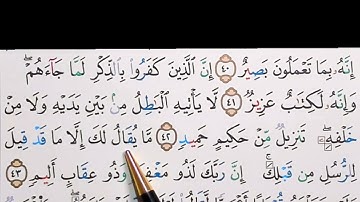 إِنَّهُۥ بِمَا تَعْمَلُونَ بَصِيرٌ ٤٠ إِنَّ ٱلَّذِينَ كَفَرُوا۟ بِٱلذِّكْرِ لَمَّا جَآءَهُمْ ۖ
وَإِنَّهُۥ لَكِتَٰبٌ عَزِيزٌ ٤١ لَّا يَأْتِيهِ ٱلْبَٰطِلُ مِنۢ بَيْنِ يَدَيْهِ وَلَا مِنْ
خَلْفِهِۦ ۖ تَنزِيلٌ مِّنْ حَكِيمٍ حَمِيدٍ ٤٢ مَّا يُقَالُ لَكَ إِلَّا مَا قَدْ قِيلَ
لِلرُّسُلِ مِن قَبْلِكَ ۚ إِنَّ رَبَّكَ لَذُو مَغْفِرَةٍ وَذُو عِقَابٍ أَلِيمٍ ٤٣